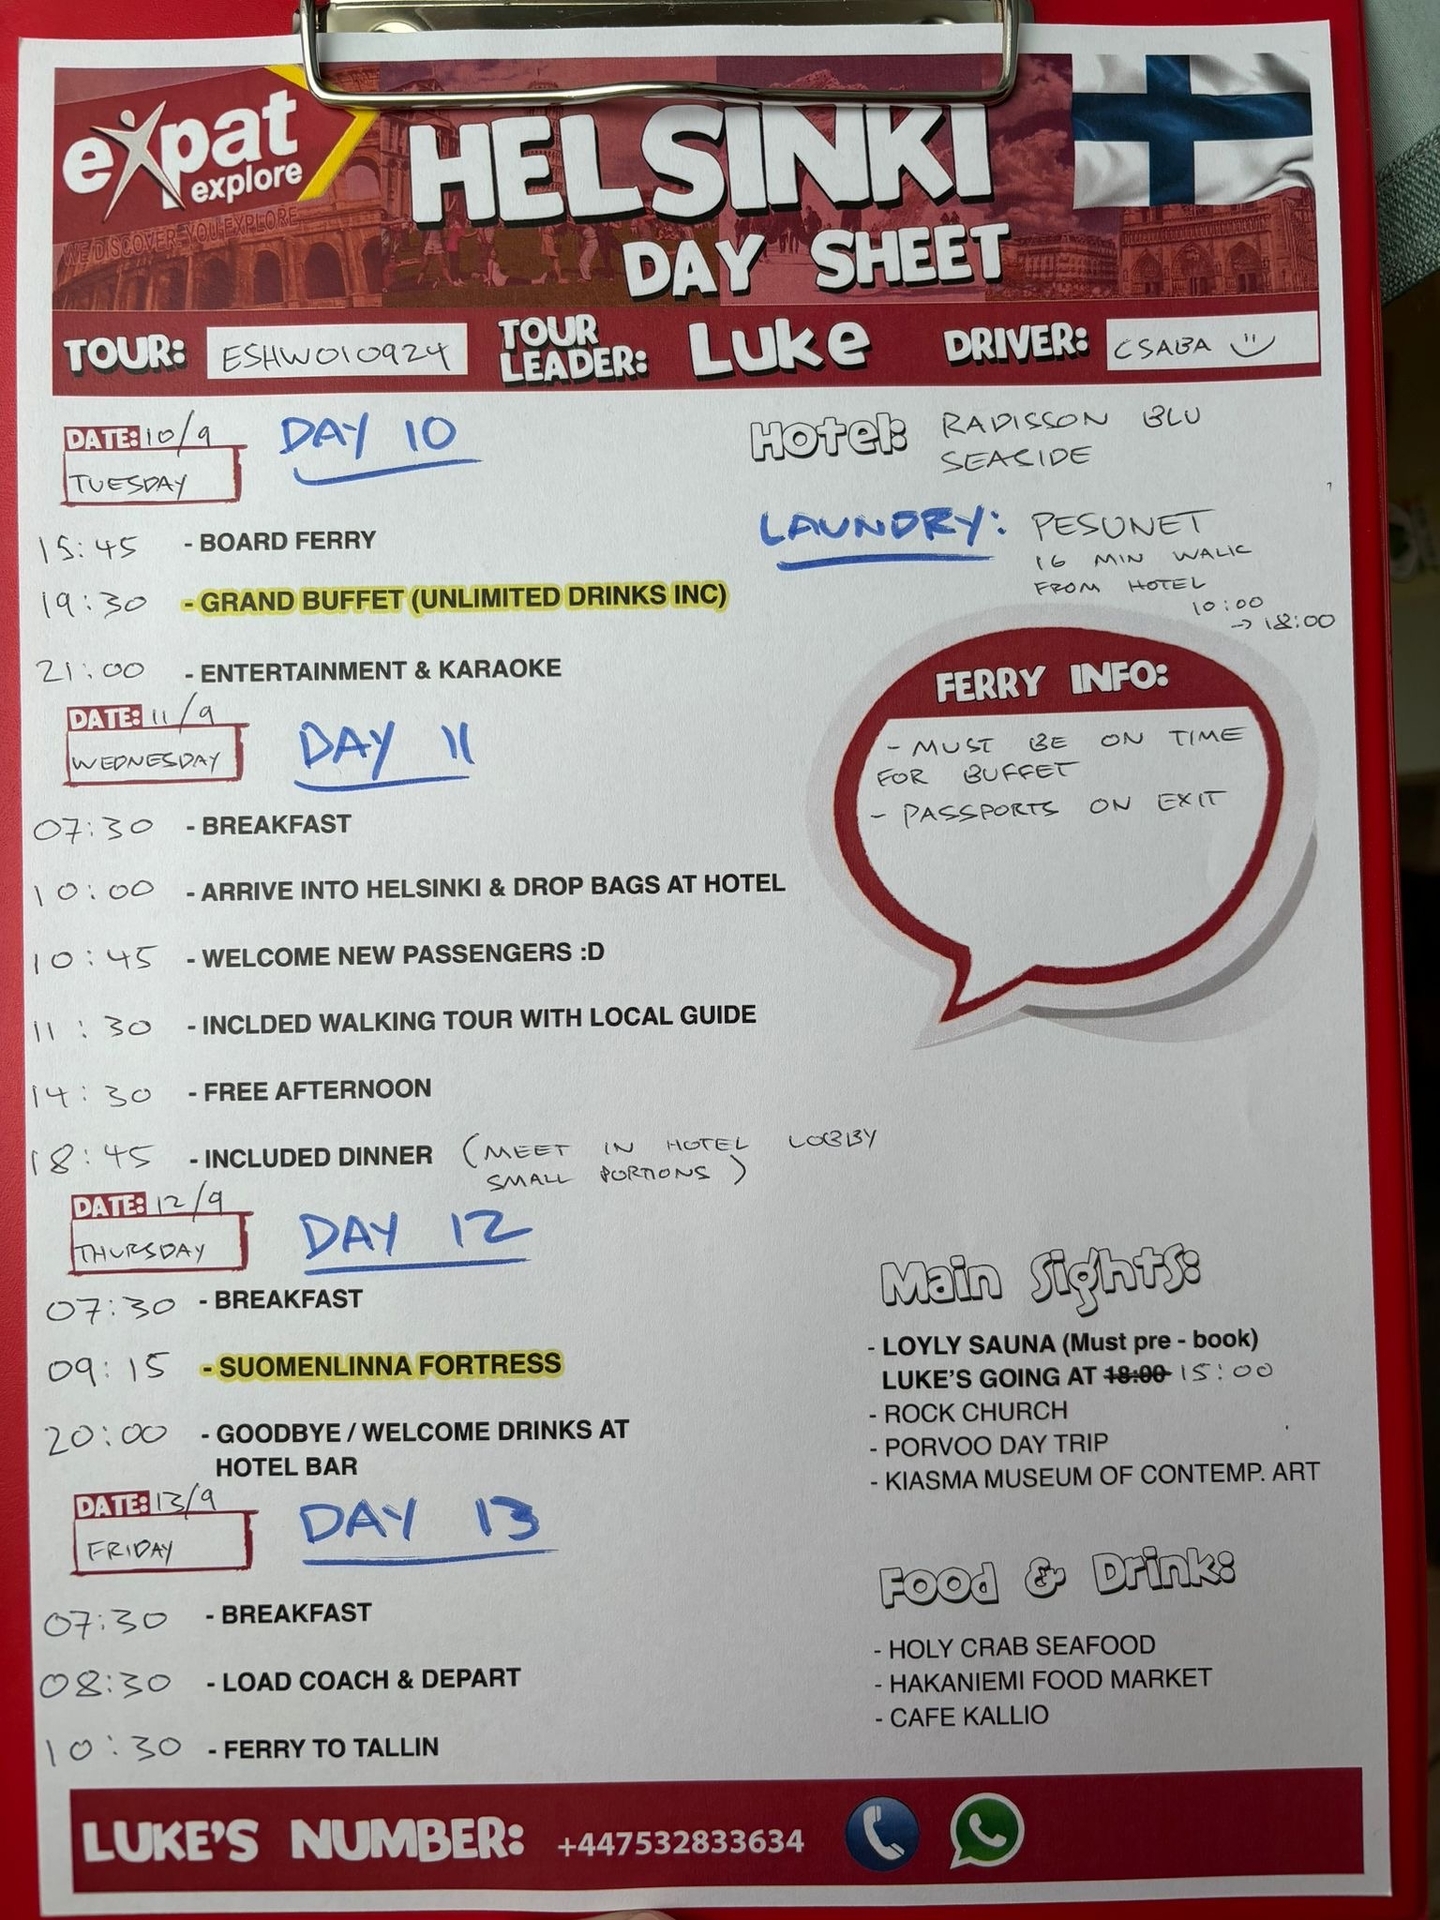 expat
explore
WE DISCOVER. YOU EXPLORE
HELSINKI
DAY SHEET
TOUR: ESHW010924
TOUR LEADER: Luke
DRIVER: CSABA
DATE: 10/9
TUESDAY
DAY 10
15:45 - BOARD FERRY
19:30 - GRAND BUFFET (UNLIMITED DRINKS INC)
21:00 - ENTERTAINMENT & KARAOKE
Hotel: RADISSON BLU
SEASIDE
LAUNDRY: PESUNET
16 MIN WALK
FROM HOTEL
10:00
→ 18:00
FERRY INFO:
- MUST BE ON TIME
FOR BUFFET
- PASSPORTS ON EXIT
DATE: 11/9
WEDNESDAY
DAY 11
07:30 - BREAKFAST
10:00 - ARRIVE INTO HELSINKI & DROP BAGS AT HOTEL
10:45 - WELCOME NEW PASSENGERS :D
11:30 - INCLDED WALKING TOUR WITH LOCAL GUIDE
14:30 - FREE AFTERNOON
18:45 - INCLUDED DINNER (MEET IN HOTEL LOBBY
SMALL PORTIONS)
DATE: 12/9
THURSDAY
DAY 12
07:30 - BREAKFAST
09:15 - SUOMENLINNA FORTRESS
20:00 - GOODBYE / WELCOME DRINKS AT
HOTEL BAR
DATE: 13/9
FRIDAY
DAY 13
07:30 - BREAKFAST
08:30 - LOAD COACH & DEPART
10:30 - FERRY TO TALLIN
Main Sights:
- LOYLY SAUNA (Must pre - book)
LUKE'S GOING AT 18:00 15:00
- ROCK CHURCH
- PORVOO DAY TRIP
- KIASMA MUSEUM OF CONTEMP. ART
Food & Drink:
- HOLY CRAB SEAFOOD
- HAKANIEMI FOOD MARKET
- CAFE KALLIO
LUKE'S NUMBER: +447532833634